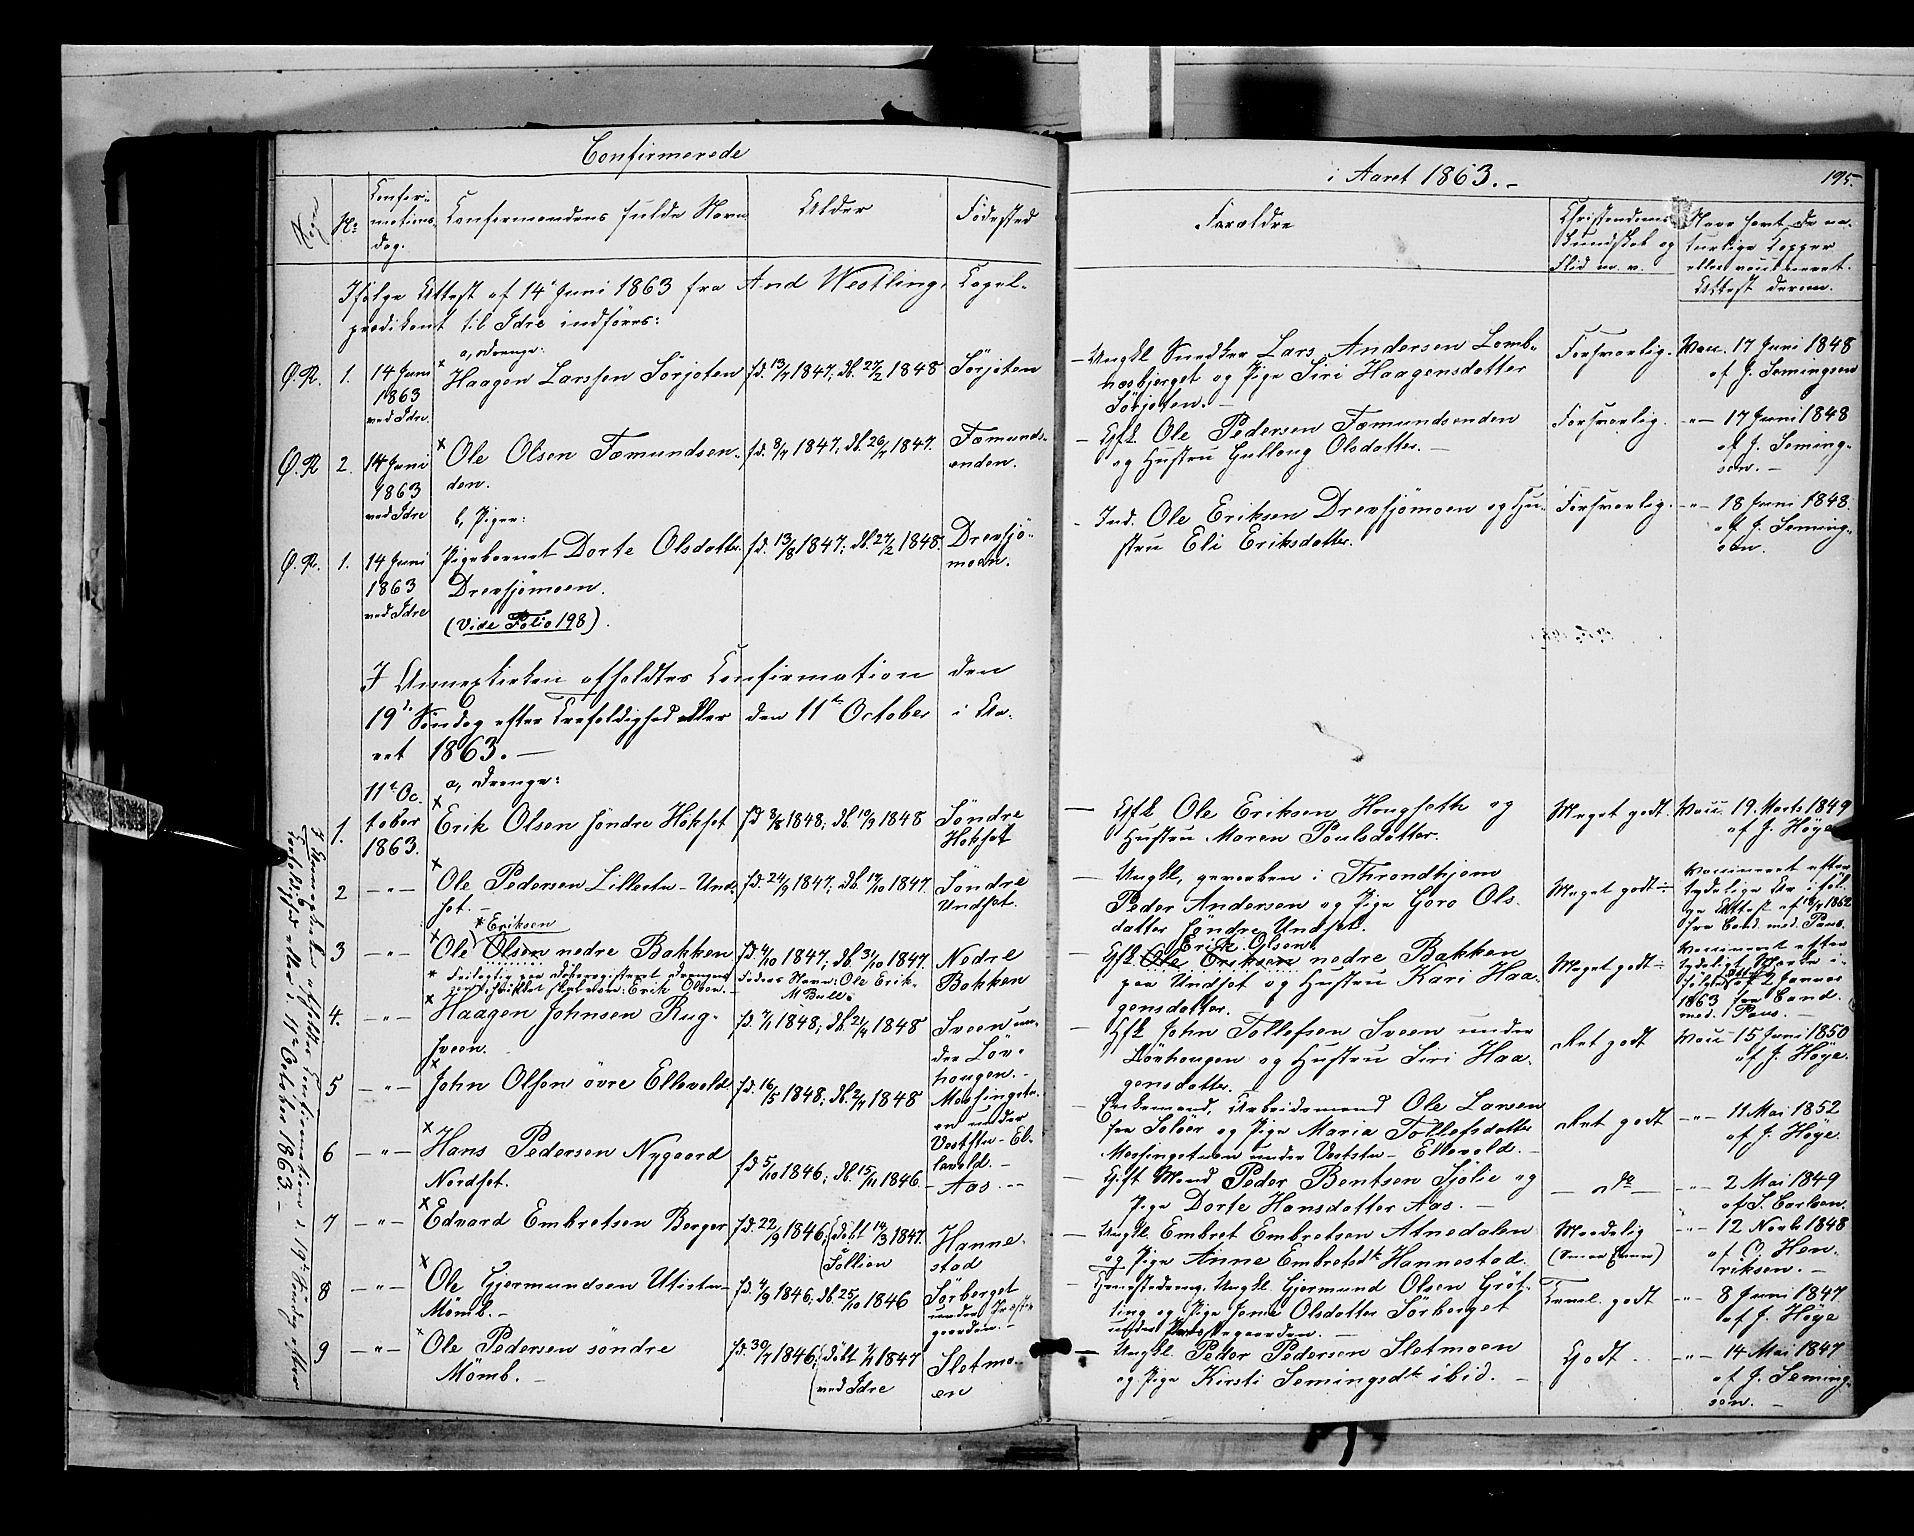 Confirmerede
i Aaret 1863.-
195.
No
Confir-
mations
dag.
Confirmandens fulde Navn
Alder
Fødested
Forældre
Christendoms
Kundskab og
Flid m. v.
Have havt de na-
turlige Kopper
eller vaccineret.
Attest derom.
Ifølge Attest af 14 Juni 1863 fra And Westling, Capel-
predikant til Idre indføres:
a, Drenge:
Ø.R. 1. 14 Juni
1863
ved Idre
Haagen Larssen Sörjoten
fd. 13/7 1847; db. 27/2 1848
Sörjoten
Ungkl Snedker Lars Andersen Lomb-
næsbjerget og Pige Siri Haagensdatter
Sörjoten.-
Forsvarlig.
Vacc. 17 Juni 1848
af J. Semingsen
Ø.R 2. 14 Juni
1863
ved Idre
Ole Olsen Fæmundsen-
den.
fd. 8/7 1847; db. 26/7 1847.
Fæmunds-
enden.
Gfl Ole Pedersen Fæmundsenden
og Hustru Gullaug Olsdatter.-
Forsvarlig.
-"- 17 Juni 1848
af J. Seming-
sen.-
b, Piger:
Ø.R. 1. 14 Juni
1863
ved Idre
Pigebarnet Dorte Olsdatter
Drevsjömoen.
(Vide Folio 198).
fd. 13/8 1847; db. 27/2 1848.
Drevsjö-
moen.
Ind. Ole Eriksen Drevsjömoen og Hu-
stru Eli Eriksdatter.
Forsvarlig.
-"- 18 Juni 1848.
af J. Seming-
sen.
I Annexkirken afholdtes Confirmation den
19de Søndag efter Trefoldighed eller den 11te October i Aa-
ret 1863.-
a, Drenge:
1. 11te Oc-
tober
1863.
Erik Olsen søndre Hokset
fd 3/8 1848; db. 10/9 1848
Söndre
Hokset
Gfl Ole Eriksen Hougseth og
Hustru Maren Poulsdatter.
Meget godt.
Vacc. 19. Marts 1849
af J. Høye
2 -"-
Ole Pedersen Lillestu-Und-
set.-
fd. 24/9 1847; db. 17/10 1847.
Söndre
Undset.
Ungkl, geworben i Throndhjem
Peder Andersen og Pige Goro Ols-
datter söndre Undset.
Meget godt
Vaccineret efter
tydelige Ar iføl-
ge Attest af 18/7 1862
fra Cand. med. Paus.
* Eriksen
3 -"-
Ole Olsen nedre Bakken
fd 4/10 1847; db. 31/10 1847.
Nedre
Bakken
Erik Olsen
Gfl Ole Eriksen nedre Bakken
paa Undset og Hustru Kari Haa-
gensdatter.
Meget godt
1863 fra Cand.
med. Paus.-
M Bull.
4. -"-
Haagen Johnsen Rug-
sveen.
fd. 4/1 1848; db. 21/4 1848
Sveen un-
der Löv-
hougen.-
Gfl John Tollefsen Sveen under
Lövhougen og Hustru Siri Haa-
gensdatter.
Ret godt
Vacc 15 Juni 1850
af J. Høye.
5 -"-
John Olsen övre Ellevold
fd. 16/5 1848; db. 2/7 1848
Messingstu-
en under
Veststu-El-
levold.-
Enkemand, Arbeidsmand Ole Larsen
fra Soløer og Pige Maria Tollefsdatter
Messingstuen under Veststu-Ellevold.-
Ret godt
-"- 11 Mai 1852
af J. Høye.
6 -"-
Hans Pedersen Nygaard
Nordset.
fd 5/10 1846; db. 15/11 1846.
-Aas.-
Gift Mand Peder Bentsen Sjölie og
Pige Dorte Hansdatter Aas.-
-do-
-"- 2 Mai 1849
af S. Carlsen.
7 -"-
Edvard Embretsen Berger
fd. 22/9 1846; (döbt 14/3 1847.
(Sollien
Hanne-
stad
Ungkl Embret Embretsen Atnedalen
og Pige Anne Embretsdr Hannestad.
Maadelig
-"- 12 Novbr 1848
af O. Hen-
riksen.-
8 -"-
Ole Gjermundsen Utistu-
Mömb.-
fd. 4/9 1846; db. 25/10 1846
Sörberget
under Præste-
gaarden.-
Ungkl. Gjermund Olsen Gröt-
ting og Pige Jane Olsdatter Sörberget
under Præstegaarden.-
Teml. godt
-"- 8 Juni 1847
af J. Høye
9 -"-
Ole Pedersen söndre
Mömb.-
fd. 30/7 1846; (döbt 1/1 1847
(ved Idre
Sletmo-
en
Ungkl. Peder Pedersen Sletmoen
og Pige Kirsti Semingsdr ibid.-
Godt.
-"- 14 Mai 1847
af J. Seming-
sen.-
I Annexkirken afholdtes Confirmation d. 19de Søndag efter
Trefoldighed eller d. 11te October 1863.-